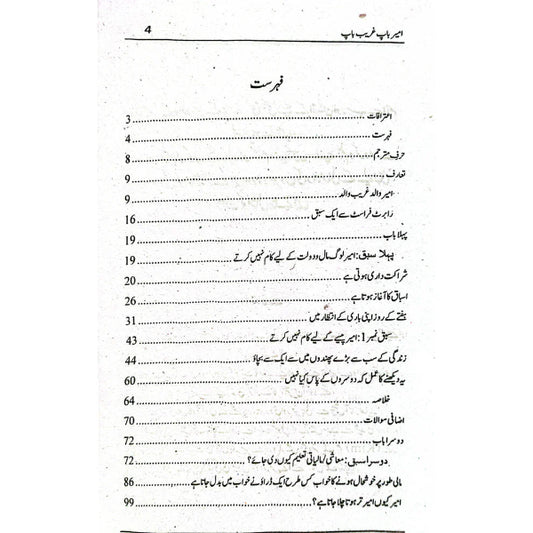 امیر باپ غریب باپ 4
فہرست
اعترافات 3
فہرست 4
حرفِ مترجم 8
تعارف 9
امیر والد غریب والد 9
رابرٹ فراسٹ سے ایک سبق 16
پہلا باب 19
پہلا سبق: امیر لوگ مال و دولت کے لیے کام نہیں کرتے 19
شراکت داری ہوتی ہے 20
اسباق کا آغاز ہوتا ہے 26
ہفتے کے روز اپنی باری کے انتظار میں 31
سبق نمبر 1: امیر پیسے کے لیے کام نہیں کرتے 43
زندگی کے سب سے بڑے پھندوں میں سے ایک سے بچاؤ 44
یہ دیکھنے کا عمل کہ دوسروں کے پاس کیا نہیں 60
خلاصہ 64
اضافی سوالات 70
دوسرا باب 72
دوسرا سبق: معاشی / مالیاتی تعلیم کیوں دی جائے؟ 72
مالی طور پر خوشحال ہونے کا خواب کس طرح ایک ڈراؤنے خواب میں بدل جاتا ہے 86
امیر کیوں امیر تر ہوتا چلا جاتا ہے؟ 99